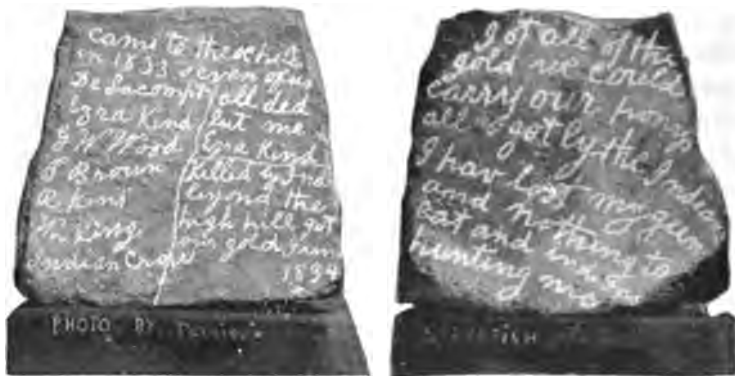 came to these hills
in 1833 seven of us
DeLacompt
Ezra Kind
G W Wood
T Brown
R Kent
Wm King
Indian Crow
all ded
but me
Ezra Kind
Killed by Ind
beyond the
high hill got
our gold june
1834
I ot all of the
gold we could
carry our ponys
all got by the Indians
I hav lost my gun
and nothing to
eat and indians
hunting me
PHOTO BY